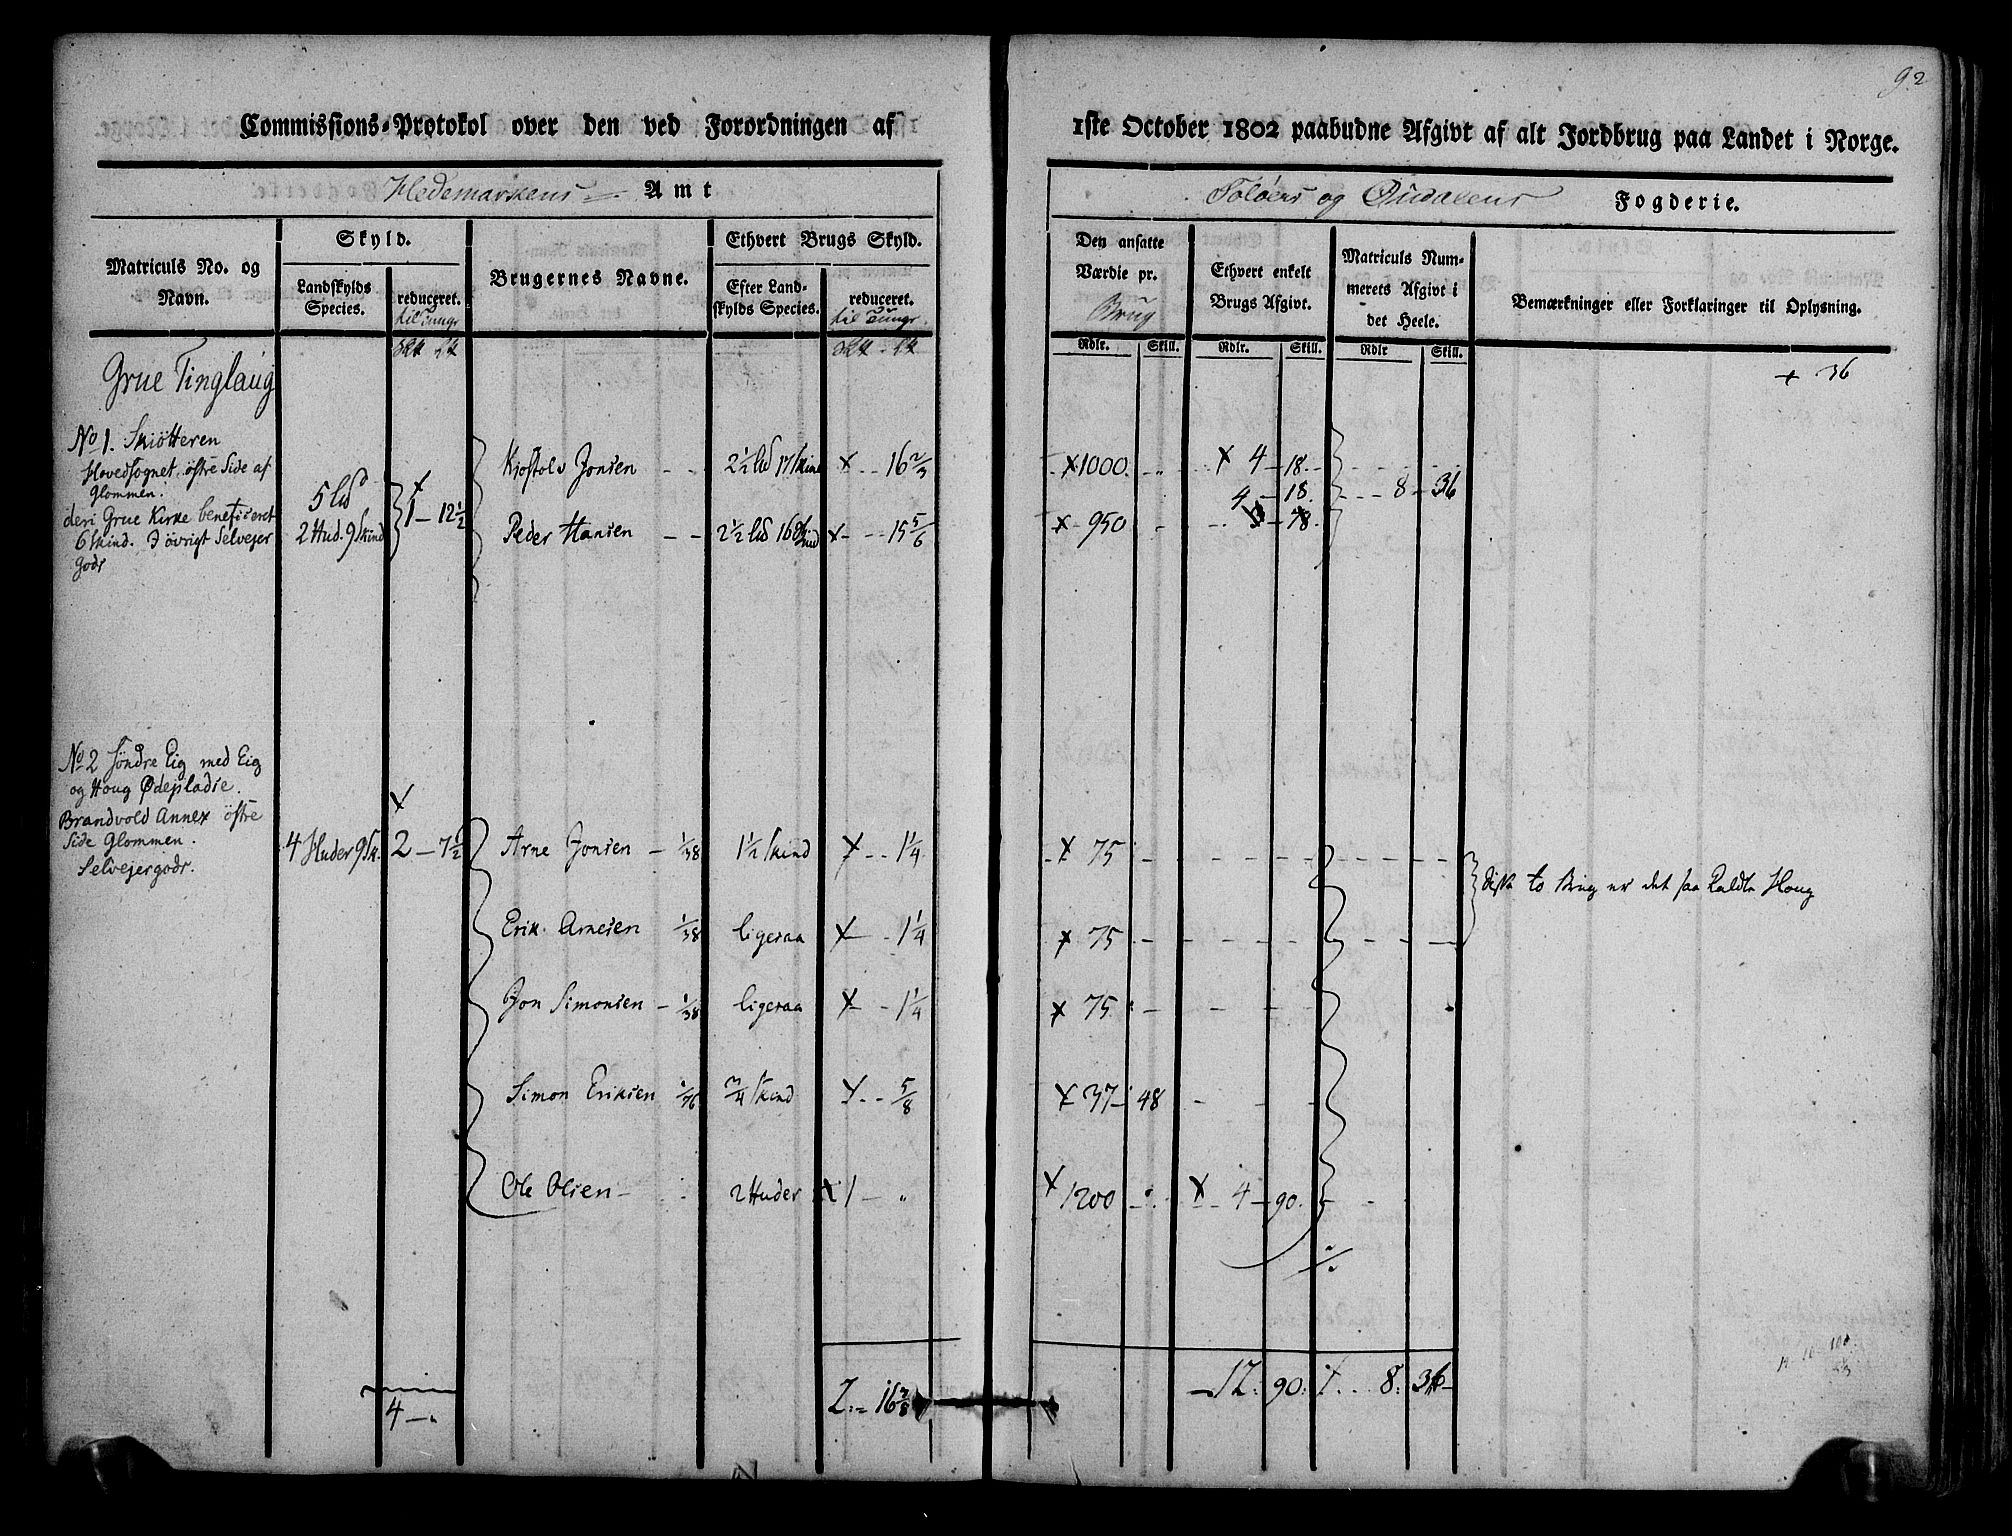 92
Commissions-Protokol over den ved Forordningen af 1ste October 1802 paabudne Afgivt af alt Jordbrug paa Landet i Norge.
Hedemarkens Amt
Soløers og Oudalens Fogderie.
Matriculs No. og Navn.
Skyld.
Landskylds Species.
reduceret. til Tunge
Brugernes Navne.
Ethvert Brugs Skyld.
Efter Landskylds Species.
reduceret. til Tunge.
Den ansatte Værdie pr. Brug
Ethvert enkelt Brugs Afgivt.
Matriculs Nummerets Afgivt i det Heele.
Bemærkninger eller Forklaringer til Oplysning.
Rdlr. Skill. Rdlr. Skill. Rdlr Skill.
Grue Tinglaug
+ 36
No 1. Skiötteren
Hovedsognet östre Side af
Glommen.
deri Grue Kirke beneficeret
6 skind. I övrigt Selvejer
Godr
5 Lis
2 Hud. 9 Skind
x
1 - 12 1/2
Kiostolv Jonsen - - 2 1/2 Lis 17 skind x - - 16 2/3 x 1000 x 4 - 18
Peder Hansen - - 2 1/2 Lis 16 x - - 15 5/6 x - 950 4 - 18. - - - 8 - 36
No 2 Söndre Eig med Eig
og Houg Ødepladse.
Brandvold Annex östre
Side Glommen.
Selvejergodr.
4 Huder 9 Sk.
x
2 - 7 1/2
Arne Jonsen - 1/38 1 1/2 skind x - - 1 1/4 x 75
disse to Brug er det saa kaldte Houg
Erik Arnesen 1/38 ligeraa x - - 1 1/4 x 75
Jon Simonsen - 1/38 ligeraa x - - 1 1/4 x 75
Simon Eriksen 1/76 3/4 skind x - - 5/8 x 37 - 48
Ole Olsen - 2 Huder x 1 - " x 1200 x 4 - 90.
4 - "
2 - 16
12 : 90 : 8 : 36